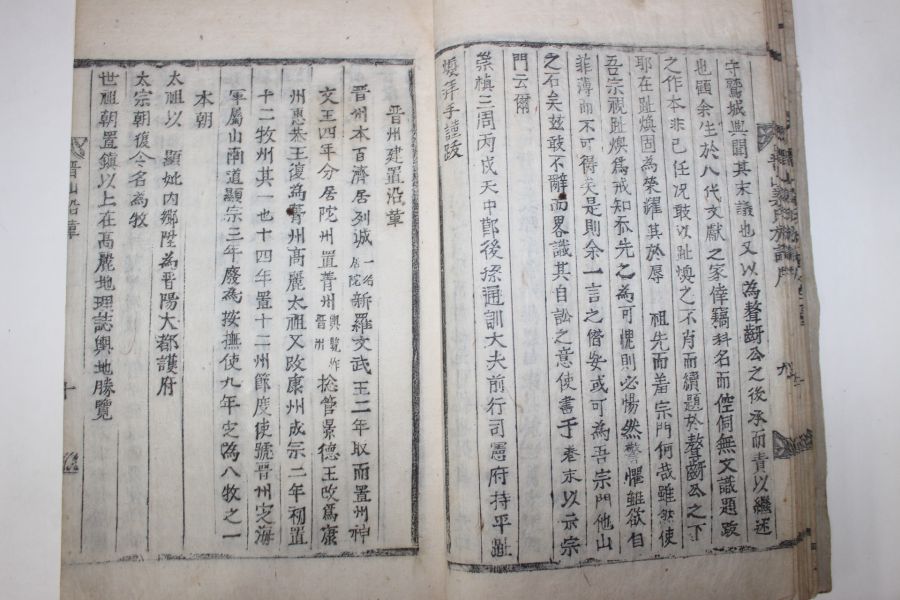 守鷲城與聞其末議也又以為聱齖公之後承而責以繼述
也顧余生於八代文獻之家倖竊科名而倥侗無文識題跋
之作本非己任况敢以趾煥之不肖而續題於聱齖公之下
耶在趾煥固為榮耀其於辱 祖先而羞宗門何哉雖然使
吾宗視趾煥為戒知忝先之為可愧則必惕然警懼雖欲自
菲薄而不可得矣是則余一言之僭妄或可為吾宗門他山
之石矣玆敢不辭而畧識其自訟之意使書于卷末以示宗
門云爾
崇禎三周丙戌天中節後孫通訓大夫前行司憲府持平趾
煥拜手謹跋
晉州建置沿革
晉州本百濟居列城 一名居陀 新羅文武王二年取而置州神
文王四年分居陀州置菁州 輿覽作晉州 捴管景德王改爲康
州惠恭王復爲菁州高麗太祖又改康州成宗二年初置
十二牧州其一也十四年置十二州節度使號晉州定海
軍屬山南道顯宗三年廢為按撫使九年定為八牧之一
本朝
太祖以 顯妣內鄉陞為晋陽大都護府
太宗朝復今名為牧
世祖朝置鎮以上在高麗地理誌輿地勝覽
晋山沿革
十